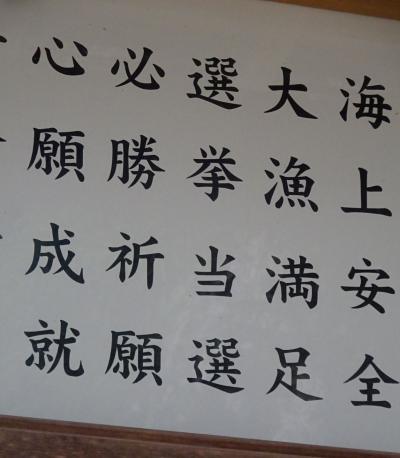 海上安全
大漁満足
選挙当選
必勝祈願
心願成就